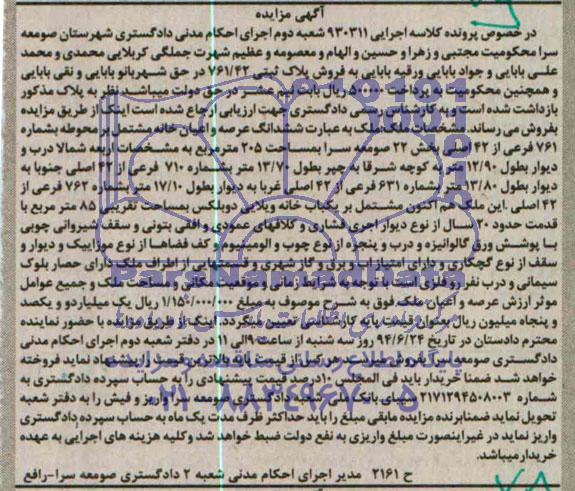 آگهی مزایده
در خصوص پرونده کلاسه اجرایی ۹۳۰۳۱۱ شعبه دوم اجرای احکام مدنی دادگستری شهرستان صومعه
سرا محکومیت مجتبی و زهرا و حسین و الهام و معصومه و عظیم شهرت جملگی کربلایی محمدی و محمد
علی بابایی و جواد بابایی ورقیه بابایی به فروش پلاک ثبتی ۷۶۱/۴۲ در حق شهربانو بابایی و نقی بابایی
و همچنین محکومیت به پرداخت ۵۰۰۰۰ ریال بابت نیم عشر در حق دولت میباشد نظر به پلاک مذکور
بازداشت شده است و به کارشناس رسمی دادگستری جهت ارزیابی ارجاع شده است اینک از طریق مزایده
بفروش می رساند. مشخصات ملک: ملک به عبارت ششدانگ عرصه و اعیان خانه مشتمل بر محوطه بشماره
۷۶۱ فرعی از ۴۲ اصلی بخش ۲۲ صومعه سرا بمساحت ۲۰۵ مترمربع به مشخصات اربعه شمالا درب و
دیوار بطول ۱۲/۹۰ متر به کوچه شرقا به چپر بطول ۱۳/۷۰ متر بشماره ۷۱۰ فرعی از ۴۲ اصلی جنوبا به
دیوار بطول ۱۳/۸۰ متر بشماره ۶۳۱ فرعی از ۴۲ اصلی غربا به دیوار بطول ۱۷/۱۰ متر بشماره ۷۶۲ فرعی از
۴۲ اصلی .این ملک هم اکنون مشتمل بر یکباب خانه ویلایی دوبلکس بمساحت تقریبی ۸۵ متر مربع با
قدمت حدود ۲۰ سال از نوع دیوار اجری فشاری و کلافهای عمودی و افقی بتونی و سقف شیروانی چوبی
با پوشش ورق گالوانیزه و درب و پنجره از نوع چوب و الومینیوم و کف فضاها از نوع موزاییک و دیوار و
سقف از نوع گچکاری و دارای امتیاز اب و برق و گاز شهری و قسمتهایی از اطراف ملک دارای حصار بلوک
سیمانی و درب نفررو فلزی است با توجه به شرایط زمانی و موقعیت مکانی و مساحت ملک و جمیع عوامل
موثر ارزش عرصه و اعیان ملک فوق به شرح موصوف به مبلغ ۱/۱۵۰/۰۰۰/۰۰۰ ریال یک میلیاردو و یکصد
و پنجاه میلیون ریال بعنوان قیمت پایه کارشناسی تعیین میگردد. اینک از طریق مزایده با حضور نماینده
محترم دادستان در تاریخ ۹۴/۶/۲۴ روز سه شنبه از ساعت ۹ الی ۱۱ در دفتر شعبه دوم اجرای احکام مدنی
دادگستری صومعه سرا بفروش میرسد هر کس از قیمت پایه بالاترین قیمت را پیشنهاد نماید فروخته
خواهد شد ضمنا خریدار باید فی المجلس ۱۰ درصد قیمت پیشنهادی را به حساب سپرده دادگستری به
شماره ۲۱۷۱۲۹۴۵۰۸۰۰۳ سیبای بانک ملی شعبه دادگستری صومعه سرا واریز و فیش را به دفتر شعبه
تحویل نماید ضمنابرنده مزایده مابقی مبلغ را باید حداکثر ظرف مدت یک ماه به حساب سپرده دادگستری
واریز نماید در غیراینصورت مبلغ واریزی به نفع دولت ضبط خواهد شد وکلیه هزینه های اجرایی به عهده
خریدار میباشد.
ح ۲۱۶۱ مدیر اجرای احکام مدنی شعبه ۲ دادگستری صومعه سرا-رافع
ParsNamadData
۰۲۱-۸۸۳۴۹۶۷۰-۵